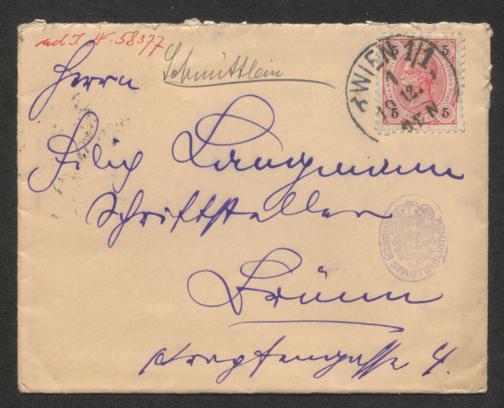 ad I. N. 58377
Schmittlein
WIEN 1/1
5 5
5 5
Herrn
Philipp Langmann
Schriftsteller
Brünn
4.